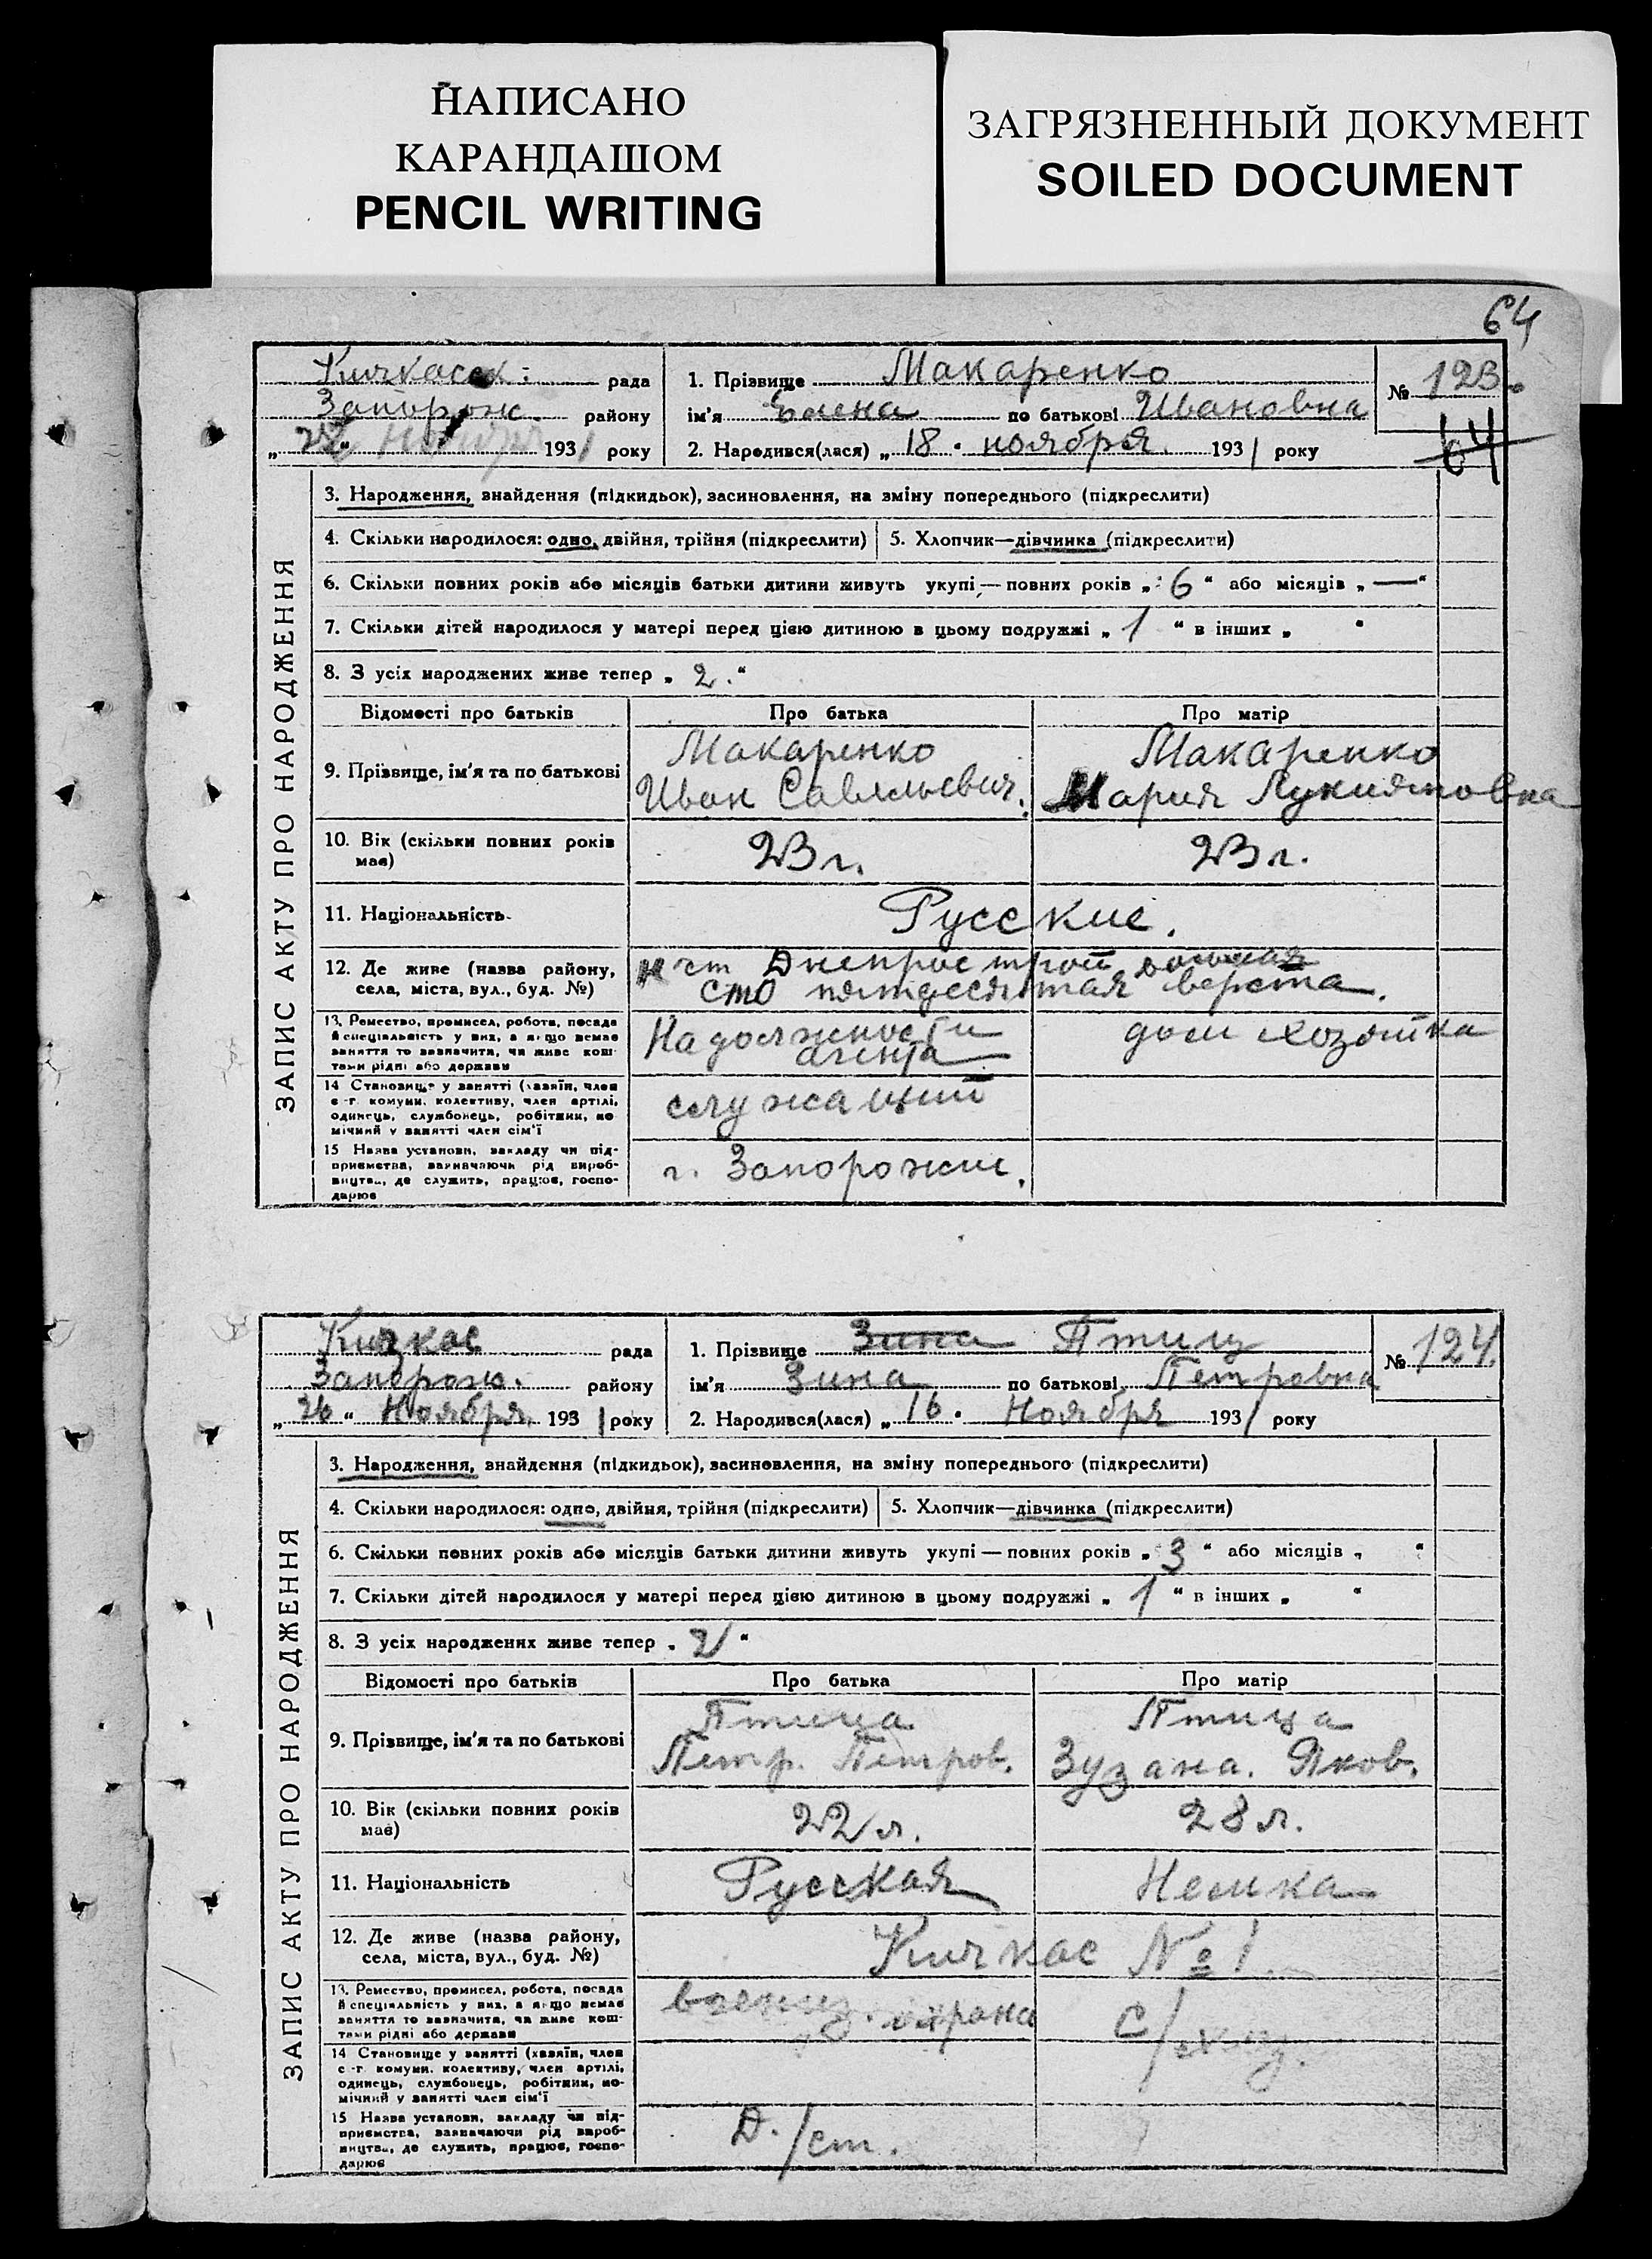 НАПИСАНО
КАРАНДАШОМ
PENCIL WRITING
ЗАГРЯЗНЕННЫЙ ДОКУМЕНТ
SOILED DOCUMENT
64
Кичкасск: рада
Запорож. району
„ “ 1931 року
1. Прізвище Макаренко
ім’я Елена по батькові Ивановна
2. Народився(лася) „ 18 . ноября. 1931 року
№ 123.
64
ЗАПИС АКТУ ПРО НАРОДЖЕННЯ
3. Народження, знайдення (підкидьок), засиновлення, на зміну попереднього (підкреслити)
4. Скільки народилося: одно, двійня, трійня (підкреслити) 5. Хлопчик—дівчинка (підкреслити)
6. Скільки повних років або місяців батьки дитини живуть укупі — повних років „ 6 “ або місяців „ — “
7. Скільки дітей народилося у матері перед цією дитиною в цьому подружжі „ 1 “ в інших „ “
8. З усіх народжених живе тепер „ 2. “
Відомості про батьків Про батька Про матір
9. Прізвище, ім’я та по батькові
Макаренко
Иван Савельевич.
Макаренко
Мария Лукияновна
10. Вік (скільки повних років має) 23 г. 23 г.
11. Національність Русские.
12. Де живе (назва району, села, міста, вул., буд. №)
ст Днепрострой
сто пятдесятая верста.
13. Ремество, промисел, робота, посада й спеціяльність у них, а якщо немає заняття то зазначити, чи живе коштами рідні або держави
На должности
агента
дом хозяйка
14 Становище у занятті (хазяїн, член с.-г. комуни, колективу, член артілі, одинець, службовець, робітник, помічний у занятті член сім’ї
служащий
15 Назва установи, закладу чи підприємства, зазначаючи рід виробництва, де служить, працює, господарює
г. Запорожье.
Кичкас рада
Запорож. району
„ 26 “ Ноября. 1931 року
1. Прізвище Зина Птиц
ім’я Зина по батькові Петровна
2. Народився(лася) „ 16 . Ноября 1931 року
№ 124.
ЗАПИС АКТУ ПРО НАРОДЖЕННЯ
3. Народження, знайдення (підкидьок), засиновлення, на зміну попереднього (підкреслити)
4. Скільки народилося: одно, двійня, трійня (підкреслити) 5. Хлопчик—дівчинка (підкреслити)
6. Скільки повних років або місяців батьки дитини живуть укупі — повних років „ 3 “ або місяців „ “
7. Скільки дітей народилося у матері перед цією дитиною в цьому подружжі „ 1 “ в інших „ “
8. З усіх народжених живе тепер „ 2 “
Відомості про батьків Про батька Про матір
9. Прізвище, ім’я та по батькові
Птица
Петр. Петров.
Птица
Зузана. Яков.
10. Вік (скільки повних років має) 22 л. 28 л.
11. Національність Русская Немка
12. Де живе (назва району, села, міста, вул., буд. №)
Кичкас № 1
13. Ремество, промисел, робота, посада й спеціяльність у них, а якщо немає заняття то зазначити, чи живе коштами рідні або держави
охрана
с/хоз.
14 Становище у занятті (хазяїн, член с.-г. комуни, колективу, член артілі, одинець, службовець, робітник, помічний у занятті член сім’ї
15 Назва установи, закладу чи підприємства, зазначаючи рід виробництва, де служить, працює, господарює
Д./ст.